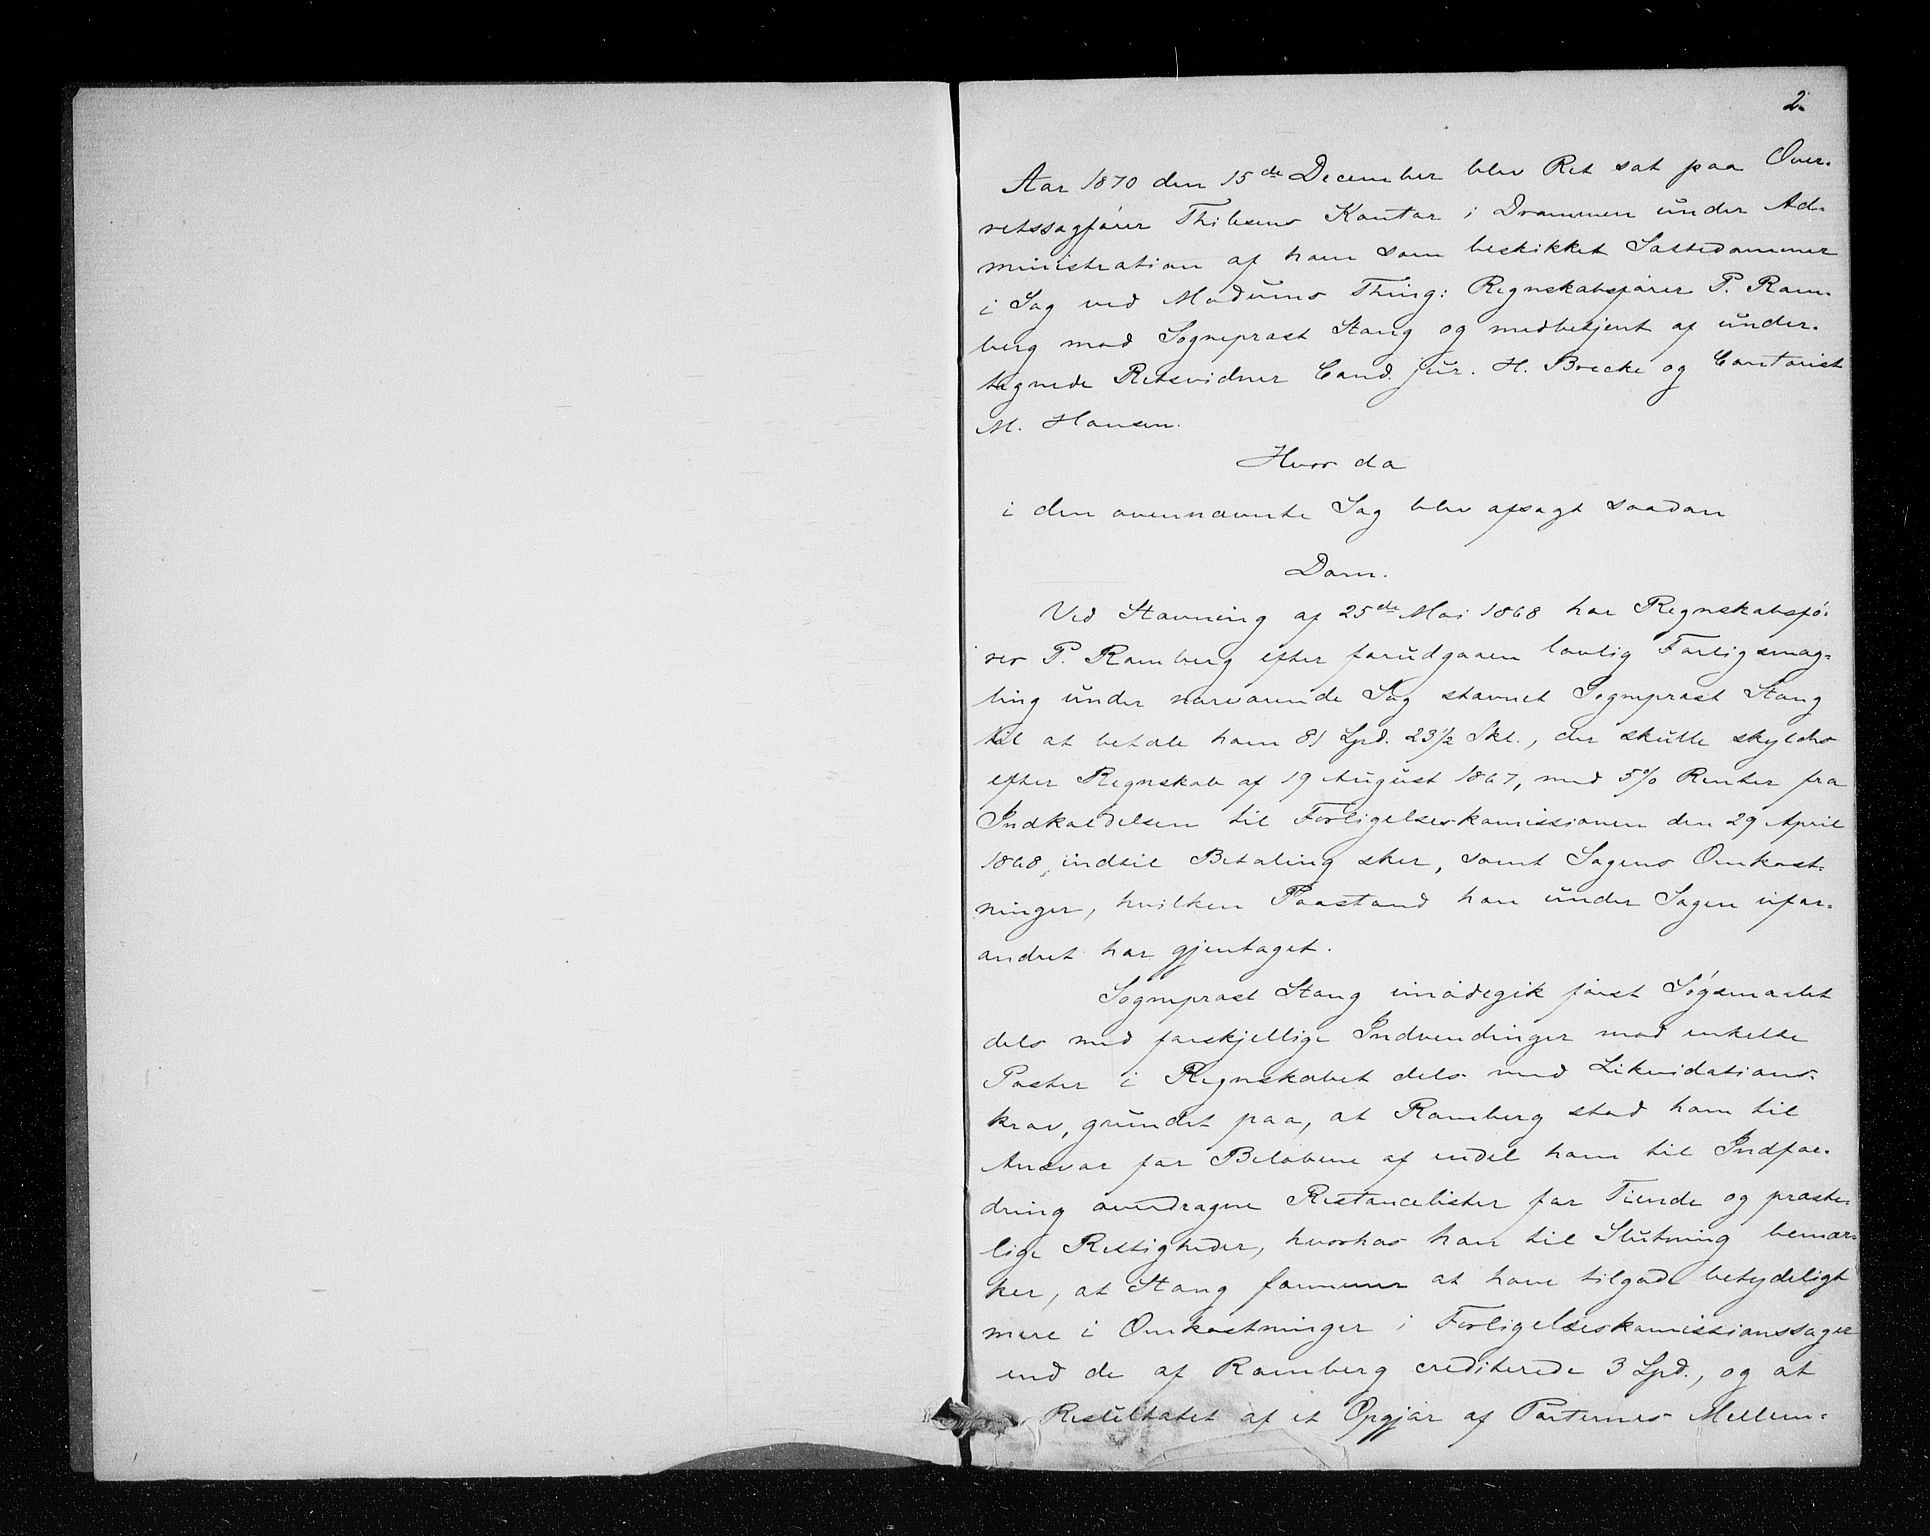 2.
Aar 1870 den 15de December blev Ret sat paa Over-
retssagfører Thilesens Kontor i Drammen under Ad-
ministration af ham som beskikket Sættedommer
i Sag ved Modums Thing: Regnskabsfører P. Ram-
berg mod Sognepræst Stang og medbetjent af under-
tegnede Retsvidner Cand. jur. H. Brecke og Contorist
M. Hansen.
Hvor da
i den ovennævnte Sag blev afsagt saadan
Dom.
Ved Stævning af 25de Mai 1868 har Regnskabsfø-
rer P. Ramberg efter forudgaaen lovlig Forligsmæg-
ling under nærværende Sag stævnet Sognepræst Stang
til at betale ham 81 Spd. 23 1/2 Skl., der skulle skyldes
efter Regnskab af 19 August 1867, med 5% Renter fra
Indkaldelsen til Forligelseskomissionen den 29 April
1868, indtil Betaling sker, samt Sagens Omkost-
ninger, hvilken Paastand han under Sagen ufor-
andret har gjentaget.
Sognepræst Stang imødegik først Søgsmaalet
dels med forskjellige Indvendinger mod enkelte
Poster i Regnskabet dels med Likvidations-
krav, grundet paa, at Ramberg stod ham til
Ansvar for Beløbene af endel ham til Indfor-
dring overdragne Restancelister for Tiende og præste-
lige Rettigheder, hvorhos han til Slutning bemær-
ker, at Stang formener at have tilgode betydeligt
mere i Omkostninger i Forligelseskomissionssager
end de af Ramberg crediterede 3 Spd., og at
Resultatet af et Opgjør af Parternes Mellem-